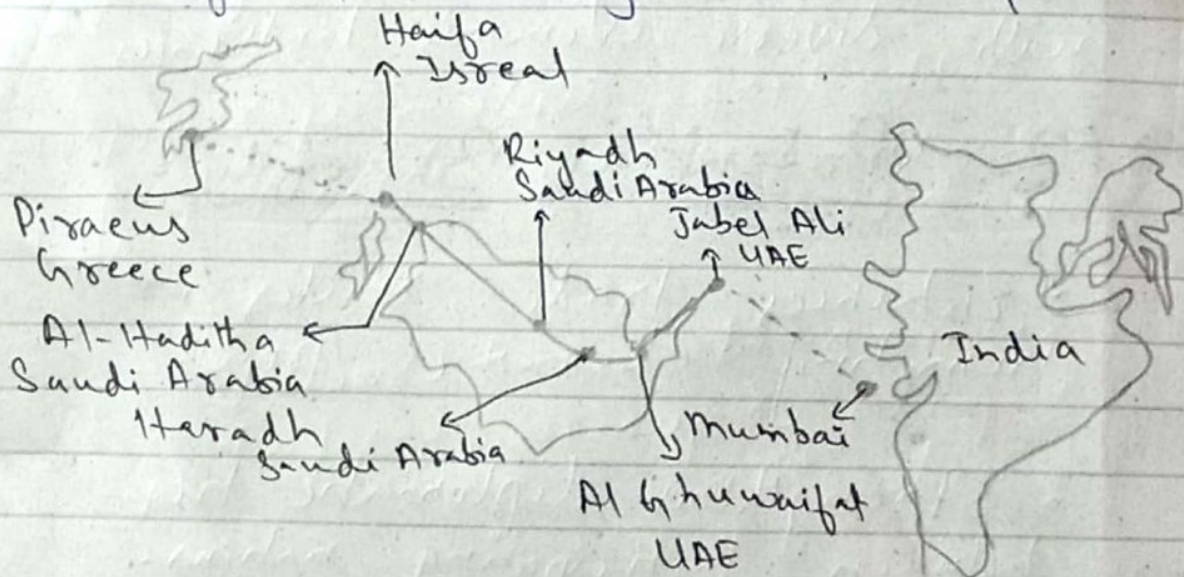 Haifa
Isreal
Riyadh
Saudi Arabia
Jabel Ali
UAE
Piraeus
Greece
Al-Haditha
Saudi Arabia
Haradh
Saudi Arabia
India
Mumbai
Al Ghuwaifat
UAE